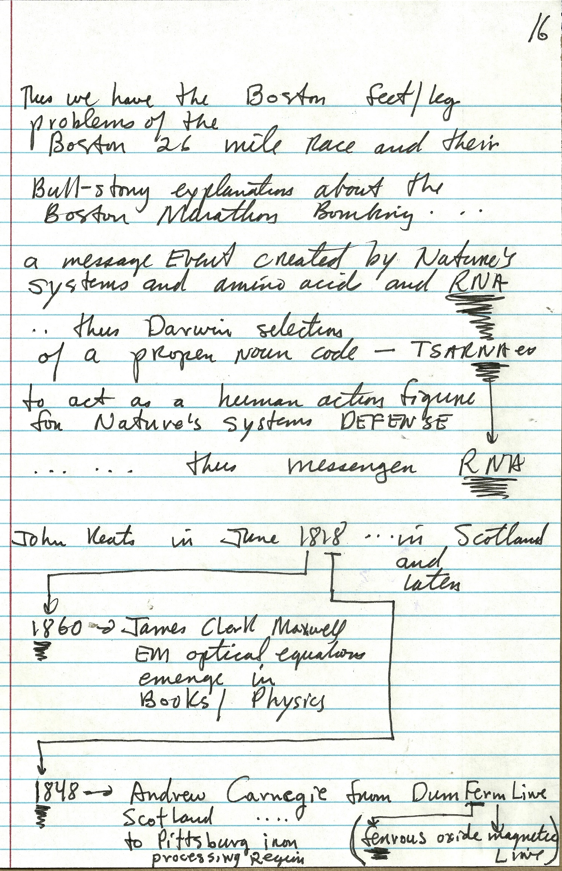 16
Thus we have the Boston feet/leg
problems of the
Boston 26 mile Race and their
Bull-story explanations about the
Boston Marathon Bombing . . .
a message Event created by Nature's
systems and amino acid and RNA
.. thus Darwin selection
of a proper noun code — TSARNAev
to act as a human action figure
for Nature's systems DEFENSE
... ... thus messenger RNA
John Keats in June 1818 ... in Scotland
and
later
1860 → James Clerk Maxwell
EM optical equations
emerge in
Books / Physics
1848 → Andrew Carnegie from DumFermLine
Scotland ....
to Pittsburg iron
processing Region
(ferrous oxide magnetic
Line)